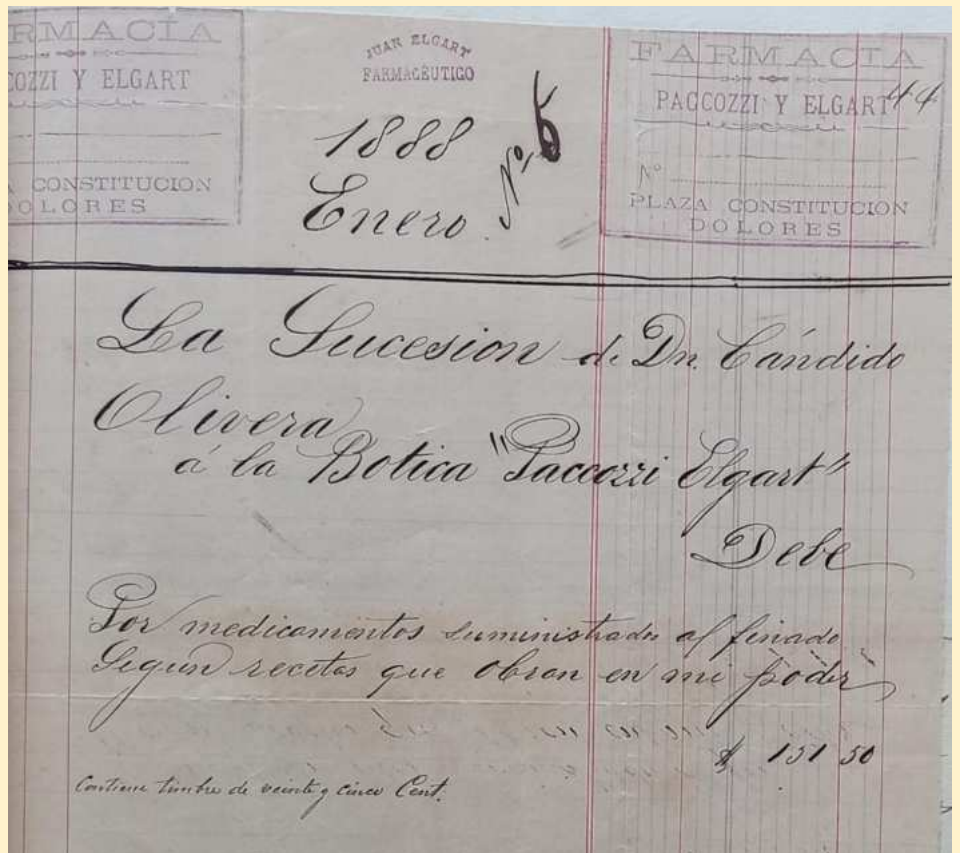 RMACÍA
COZZI Y ELGART
A CONSTITUCION
DOLORES
JUAN ELGART
FARMACÉUTICO
1888
Enero
Nº 6
FARMACIA
PACCOZZI Y ELGART
44
Nº
PLAZA CONSTITUCION
DOLORES
La Sucesion de Dn. Cándido
Olivera
á la Botica "Paccozzi Elgart"
Debe
Por medicamentos suministrados al finado
Segun recetas que obran en mi poder
$ 151 50
Contiene timbre de veinte y cinco Cent.